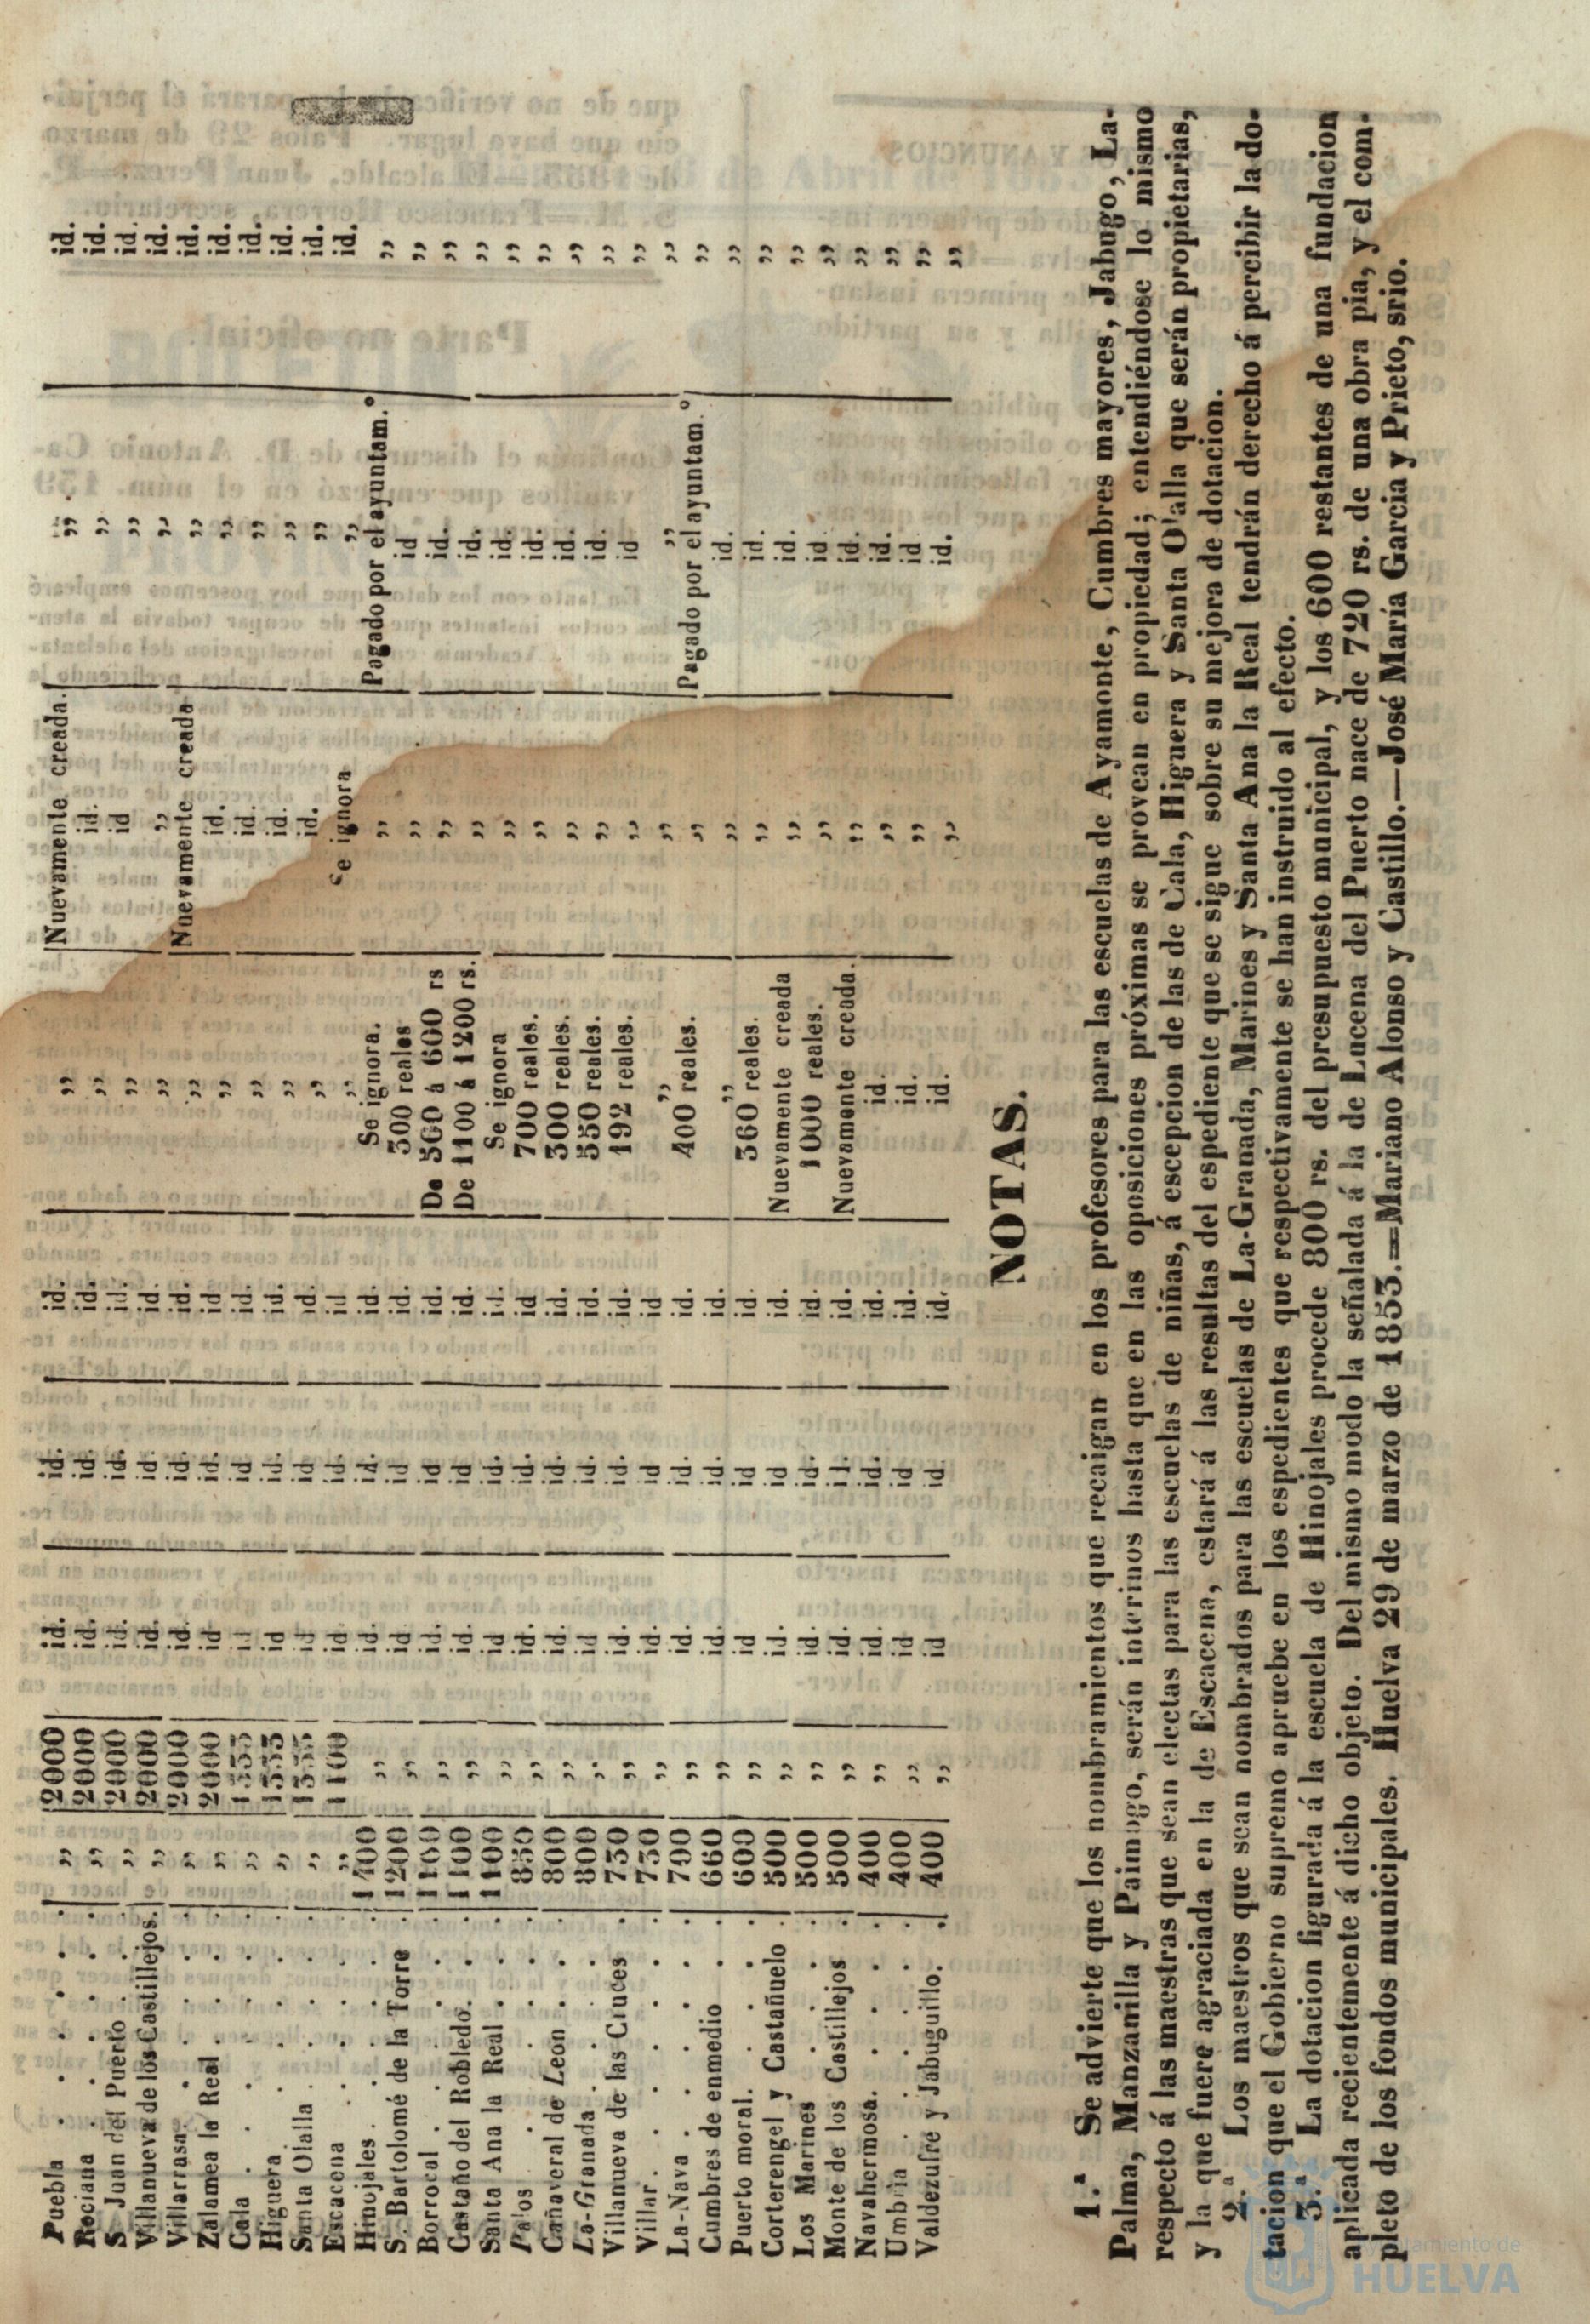 Puebla . . . . . ,, 2000 id. id. id. ,, Nuevamente creada. ,, . id.
Rociana . . . . . ,, 2000 id. id. id. ,, id. ,, id.
S Juan del Puerto . . . ,, 2000 id. id. id. ,, id ,, id.
Villanueva de los Castillejos. ,, 2000 id. id. id. ,, ,, ,, id.
Villarrasa. . . . . ,, 2000 id. id. id. ,, Nuevamente creada ,, id.
Zalamea la Real . . . ,, 2000 id id. id. ,, id. ,, id.
Cala . . . . . ,, 1333 id id id. ,, id. ,, id.
Higuera . . . . . ,, 1333 id id. id. ,, id. ,, id.
Santa Olalla . . . . ,, 1333 id id id. ,, id. ,, id.
Escacena . . . . . ,, 1100 id id. id ,, Se ignora ,, id.
Hinojales . . . . . 1400 ,, id. id. id. Se ignora. ,, Pagado por el ayuntam.° ,,
S. Bartolomé de la Torre . 1200 ,, id id id. 300 reales ,, id ,,
Borrocal . . . . . 1100 ,, id. id id. De 500 á 600 rs ,, id. ,,
Castaño del Robledo. . . 1100 ,, id. id id. De 1100 á 1200 rs. ,, id. ,,
Santa Ana la Real . . . 1100 ,, id id. id. Se ignora ,, id. ,,
Palos . . . . . 850 ,, id. id. id 700 reales. ,, id. ,,
Cañaveral de Leon . . . 800 ,, id. id. id. 300 reales. ,, id. ,,
La-Granada . . . . 800 ,, id id. id. 550 reales. ,, id. ,,
Villanueva de las Cruces . 730 ,, id. id. id. 192 reales. ,, id ,,
Villar . . . . . 730 ,, id. id id ,, ,, ,, ,,
La-Nava . . . . . 700 ,, id. id. id. 400 reales. ,, Pagado por el ayuntam.° ,,
Cumbres de enmedio . . 660 ,, id. id. id. ,, ,, id. ,,
Puerto moral. . . . 600 ,, id id id. 360 reales. ,, id. ,,
Corterengel y Castañuelo . 500 ,, id. id id. Nuevamente creada ,, id. ,,
Los Marines . . . . 500 ,, id. id. id. 1000 reales. ,, id ,,
Monte de los Castillejos . 500 ,, id. id. id. Nuevamente creada. ,, id. ,,
Navahermosa. . . . . 400 ,, id. id. id. id. ,, id. ,,
Umbria . . . . . 400 ,, id id id. id. ,, id ,,
Valdezufre y Jabuguillo. . 400 ,, id id id. id. ,, id. ,,
NOTAS.
1.ª Se advierte que los nombramientos que recaigan en los profesores para las escuelas de Ayamonte, Cumbres mayores, Jabugo, La-
Palma, Manzanilla y Paimogo, serán interinos hasta que en las oposiciones próximas se provean en propiedad; entendiéndose lo mismo
respecto á las maestras que sean electas para las escuelas de niñas, á escepcion de las de Cala, Higuera y Santa Olalla que serán propietarias,
y la que fuere agraciada en la de Escacena, estará á las resultas del espediente que se sigue sobre su mejora de dotacion.
2.ª Los maestros que sean nombrados para las escuelas de La-Granada, Marines y Santa Ana la Real tendrán derecho á percibir la do-
tacion que el Gobierno supremo apruebe en los espedientes que respectivamente se han instruido al efecto.
3.ª La dotacion figurada á la escuela de Hinojales procede 800 rs. del presupuesto municipal, y los 600 restantes de una fundacion
aplicada recientemente á dicho objeto. Del mismo modo la señalada á la de Lucena del Puerto nace de 720 rs. de una obra pia, y el com-
pleto de los fondos municipales. Huelva 29 de marzo de 1853.=Mariano Alonso y Castillo.—José María Garcia y Prieto, srio.
Ayuntamiento de
HUELVA